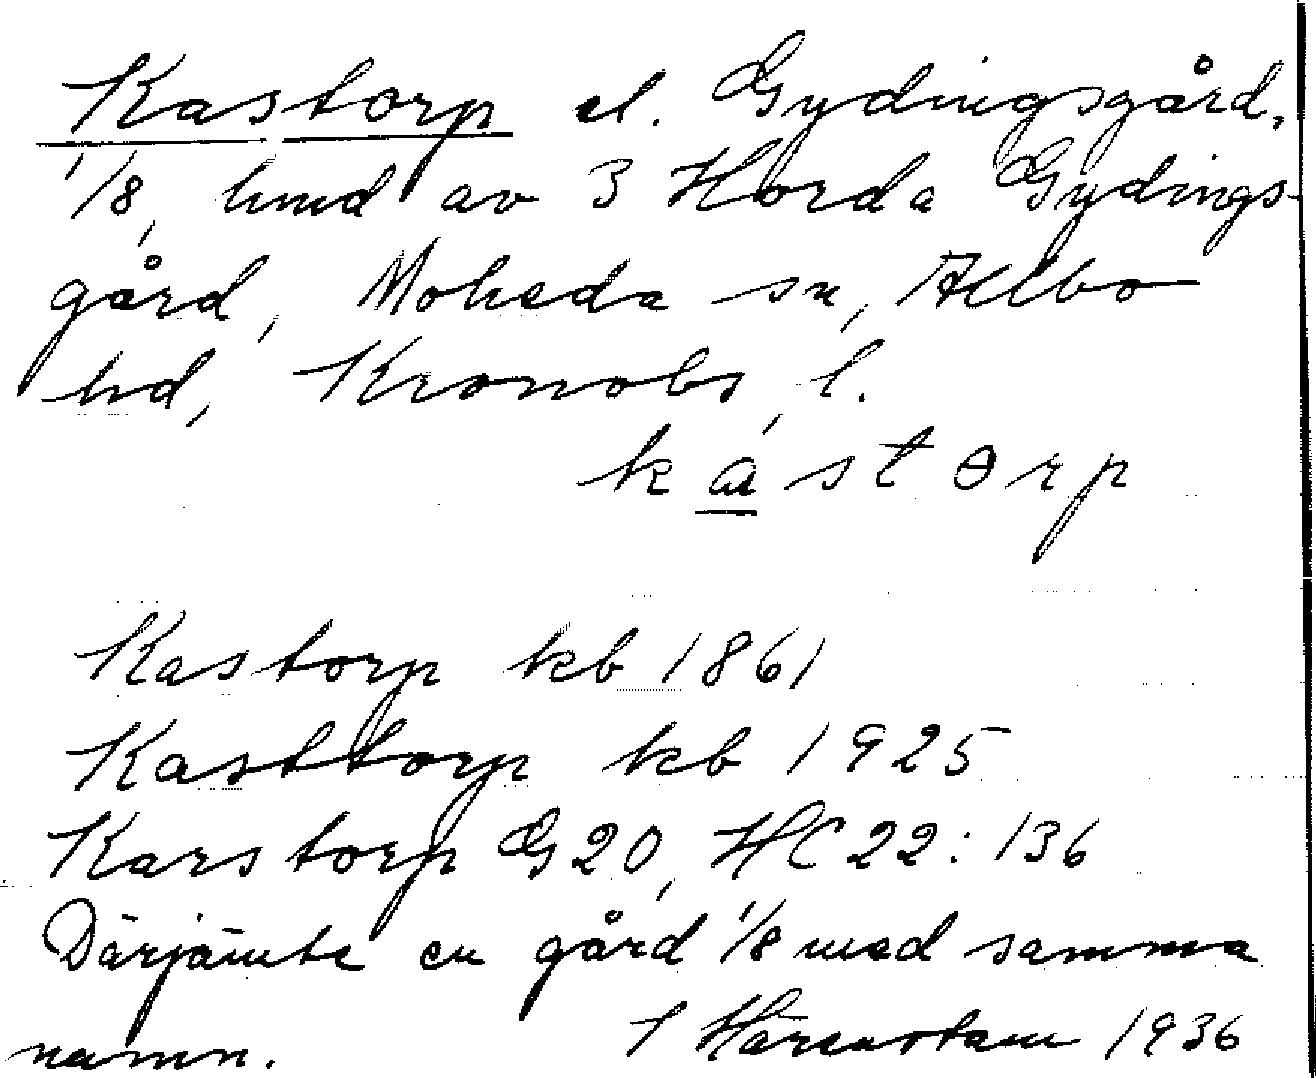 Kastorp el. Gydingsgård,
1/8, hmd av 3 Horda Gydings-
gård, Moheda sn, Allbo
hd, Kronobs, l.
kástorp
Kastorp kb 1861
Kasttorp kb 1925
Karstorp G20, HC 22:136
Därjämte en gård 1/8 med samma
namn. T Härenstam 1936